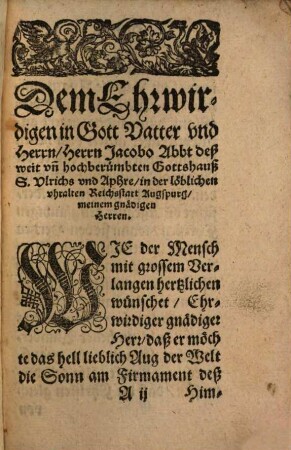 Dem Ehrwir-
digen in Gott Vatter vnd
Herrn/Herrn Jacobo Abbt deß
weit vñ hochberümbten Gottshauß
S. Vlrichs vnd Aphre/in der löblichen
vhralten Reichsstatt Augspurg/
meinem gnädigen
Herren.
WIE der Mensch
mit grossem Ver-
langen hertzlichen
wünschet / Ehr-
wirdiger gnädiger
Herr/daß er möch
te das hell lieblich Aug der Welt
die Sonn am Firmament deß
A ij Him-